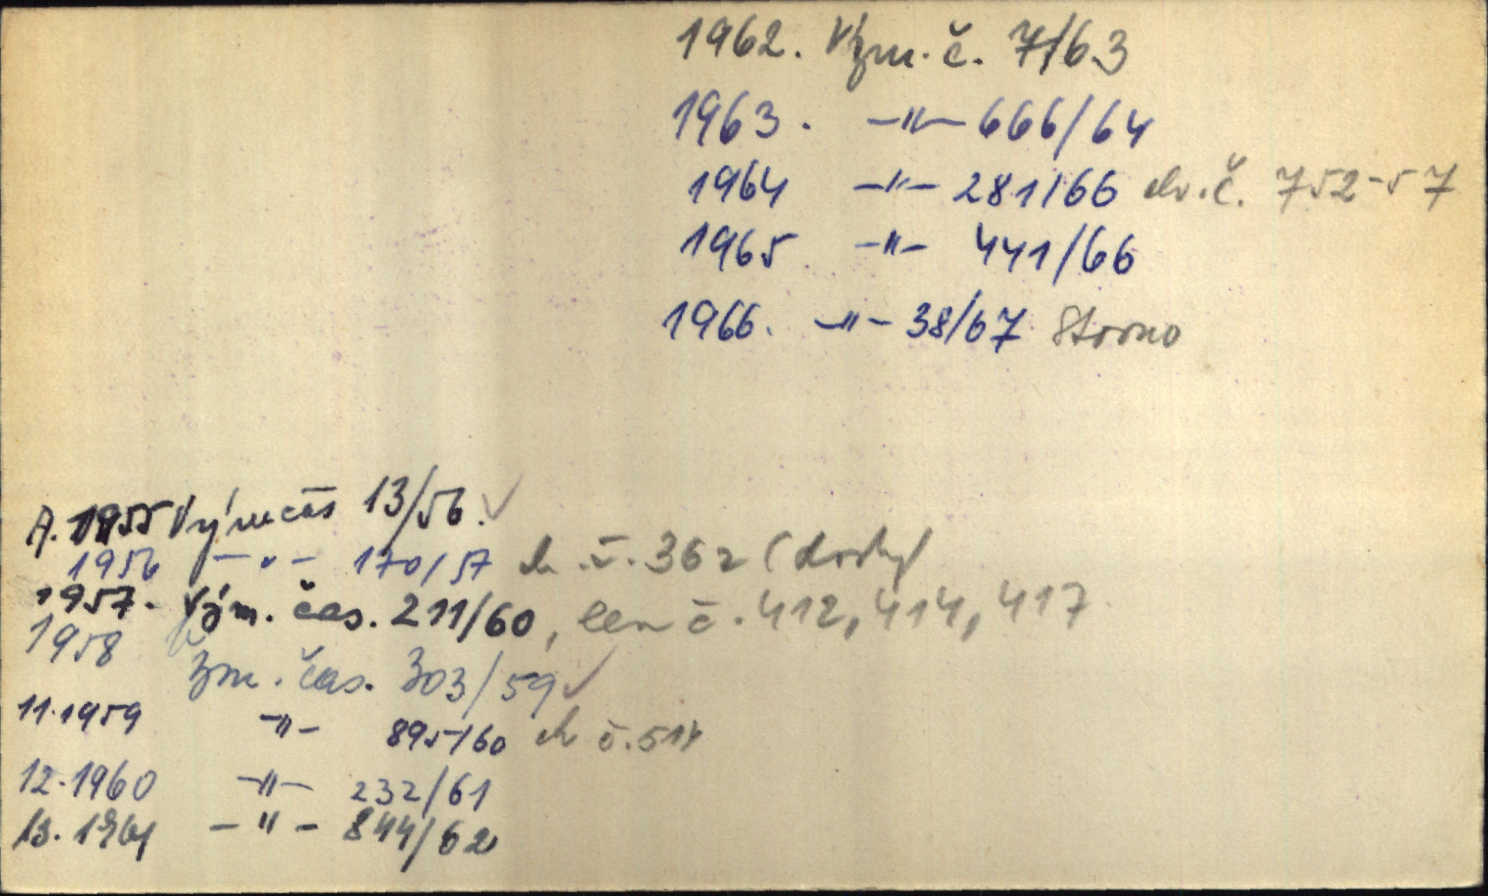 1962. Vým. č. 7/63
1963. -"- 666/64
1964 -"- 281/66 ch. č. 752-57
1965 -"- 441/66
1966. -"- 38/67 Storno
A. 1955 Vým čas 13/56. ✓
1956 -"- 170/57 ch. č. 362
1957. Vým. čas. 211/60, len č. 412, 414, 417
1958 Vým. čas. 303/59 ✓
11.1959 -"- 895/60 ch č. 514
12.1960 -"- 232/61
13. 1961 -"- 844/62